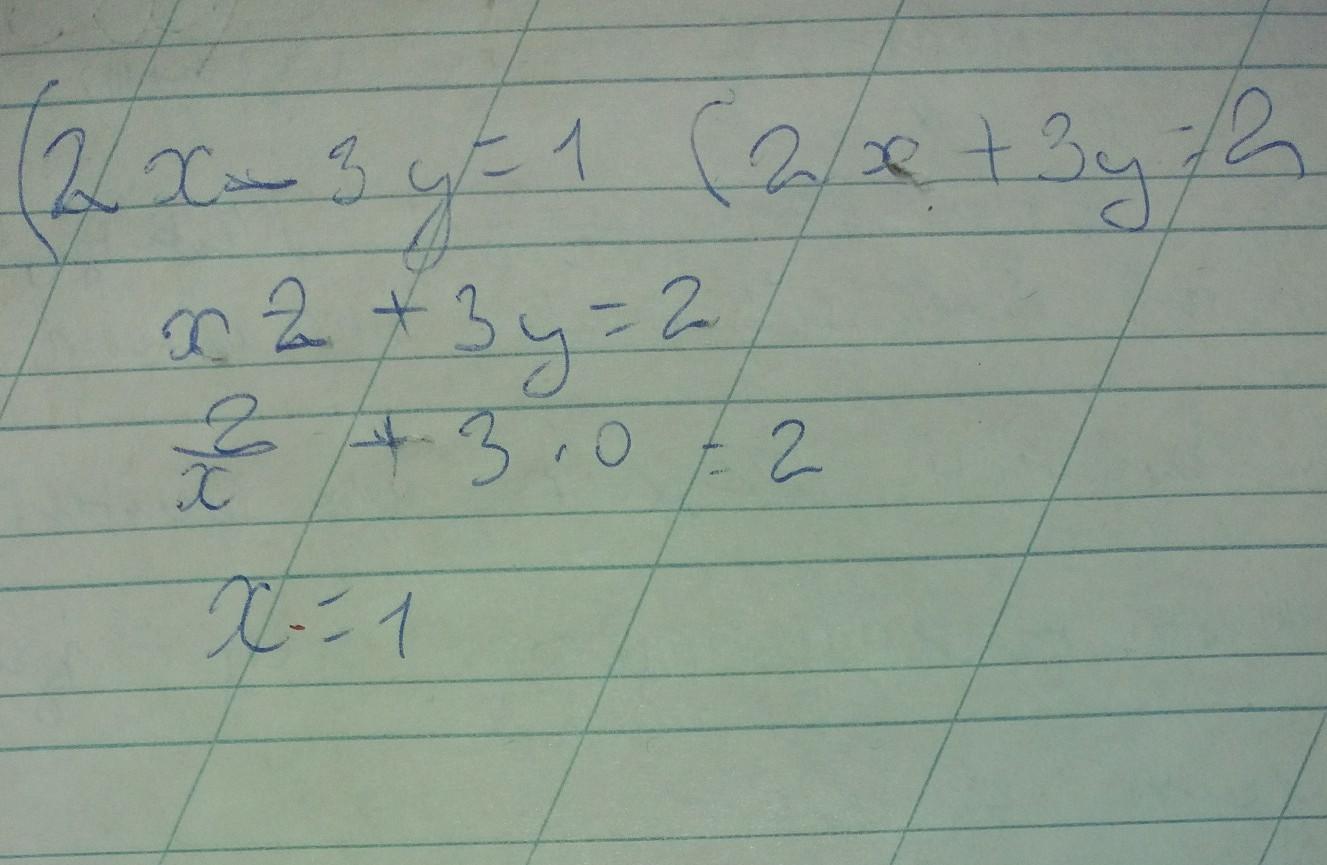 (2x-3y=1 (2x+3y=2
x2+3y=2
2/x+3·0=2
x=1